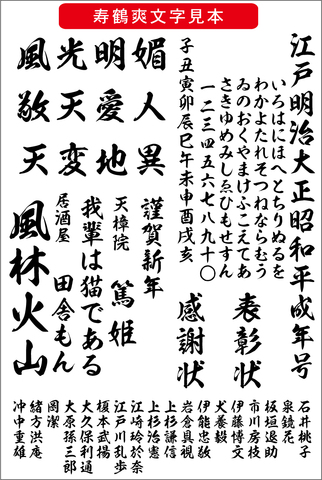 寿鶴爽文字見本
江戸明治大正昭和平成年号
いろはにほへとちりぬるを
わかよたれそつねならむう
ゐのおくやまけふこえてあ
さきゆめみしゑひもせすん
一二三四五六七八九十〇
子丑寅卯辰巳午未申酉戌亥
表彰状
感謝状
媚人異
明愛地
光天変
風敬天
謹賀新年
天樟院
篤姫
我輩は猫である
居酒屋
田舎もん
風林火山
石井桃子
泉鏡花
板垣退助
市川房枝
伊藤博文
犬養毅
伊能忠敬
岩倉具視
上杉謙信
上杉治憲
江崎玲於奈
江戸川乱歩
榎本武揚
大久保利通
大原孫三郎
岡潔
緒方洪庵
冲中重雄